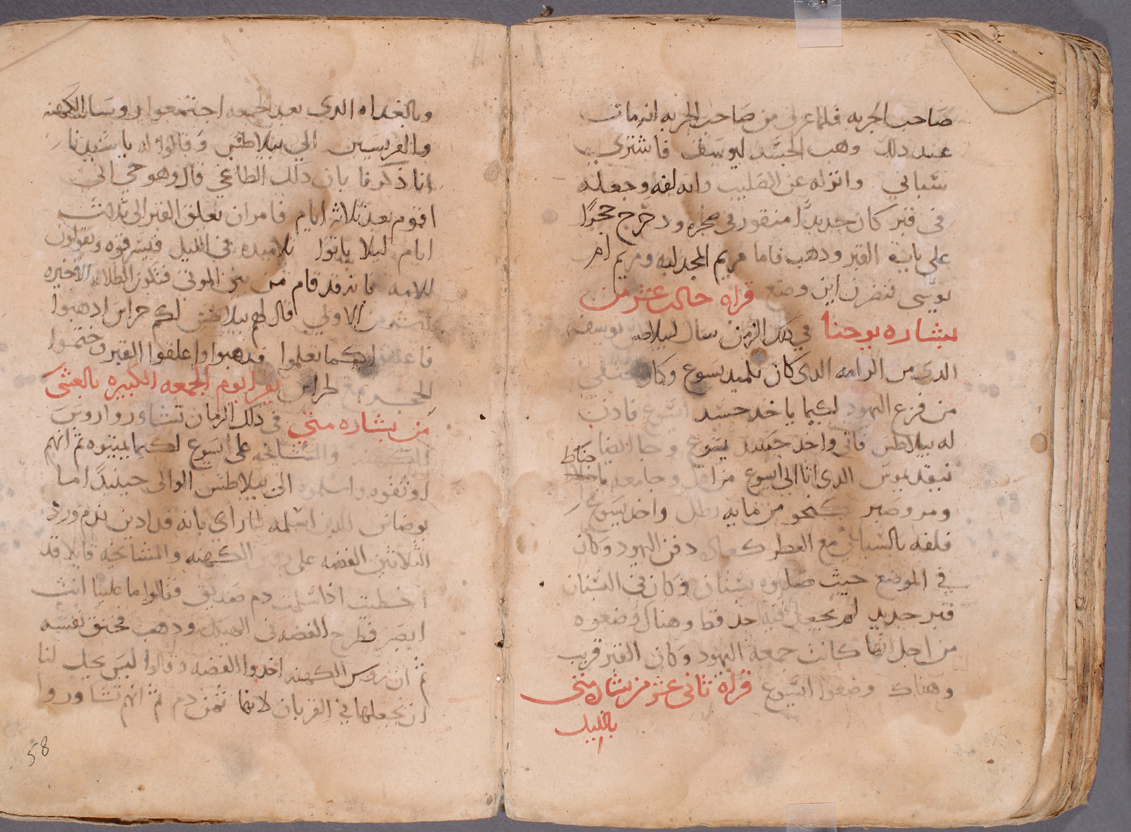 صاحب الحربه فلما عرف من صاحب الحربه انه مات
عند ذلك وهب الجسد ليوسف فاشترى
سباني وانزله عن الصليب وانه لفه وجعله
في قبر كان جديدًا منقور في صخره ودحرج حجرًا
على باب القبر وذهب فاما مريم المجدليه ومريم ام
يوسى فنظرن اين وضع قراه حادي عشر من
بشاره يوحنا في ذلك الزمن سال لبيلاطس يوسف
الذي من الرامه الذي كان تلميد يسوع وكان
من فزع اليهود لكيما ياخد جسد ايسوع فاذن
له بيلاطس فاتى واخد جسد يسوع وجا ايضا
نيقديموس الذي اتا الى ايسوع من قبل وجا معه باخلاط
ومر وصبر كنحو من مايه رطل واخد يسوع
فلفه بالسباني مع العطر كعاده دفن اليهود وكان
في الموضع حيث صلبوه بستان وكان في البستان
قبر جديد لم يجعل فيه احد قط وهناك وضعوه
من اجل انها كانت جمعه اليهود وكان القبر قريب
وهناك وضعوا ايسوع قراه ثاني عشر من بشاره متى
بالليل
وبالغداه الذي بعد الجمعه اجتمعوا روسا الكهنه
والفريسين الى بيلاطس وقالوا له يا سيدنا
انا ذكرنا بان ذلك الطاغي قال وهو حي اني
اقوم بعد ثلاثه ايام فامر ان تغلق القبر الى ثلاث
ايام ليلا ياتوا تلاميده في الليل فيسرقوه ويقولون
للامه فانه قد قام من بين الموتى فتكون الطلاله الاخيره
من الاولى قال لهم بيلاطس لكم حراس ادهبوا
كما تعلموا فدهبوا واغلقوا القبر وختموا
الحجر مع الحراس يقرا يوم الجمعه الكبيره بالعشى
من بشاره متى في ذلك الزمان تشاوروا اروس
الكهنه والمشايخه على ايسوع لكيما يميتوه ثم انهم
اوثقوه واسلموه الى بيلاطس الوالي حينيدٍ اما
يوضاس الذي اسلمه لما راى بانه قد ادين ندم ورد
الثلاثين الفضه على الكهنه والمشايخه قايلا قد
اخطيت اذ اسلمت دم صديق فقالوا ما علينا انت
ابصر فطرح الفضه في الهيكل وذهب فخنق نفسه
ثم ان روس الكهنه اخدوا الفضه وقالوا ليس يحل لنا
ان نجعلها في القربان لانها ثمن دم ثم انهم تشاوروا
58